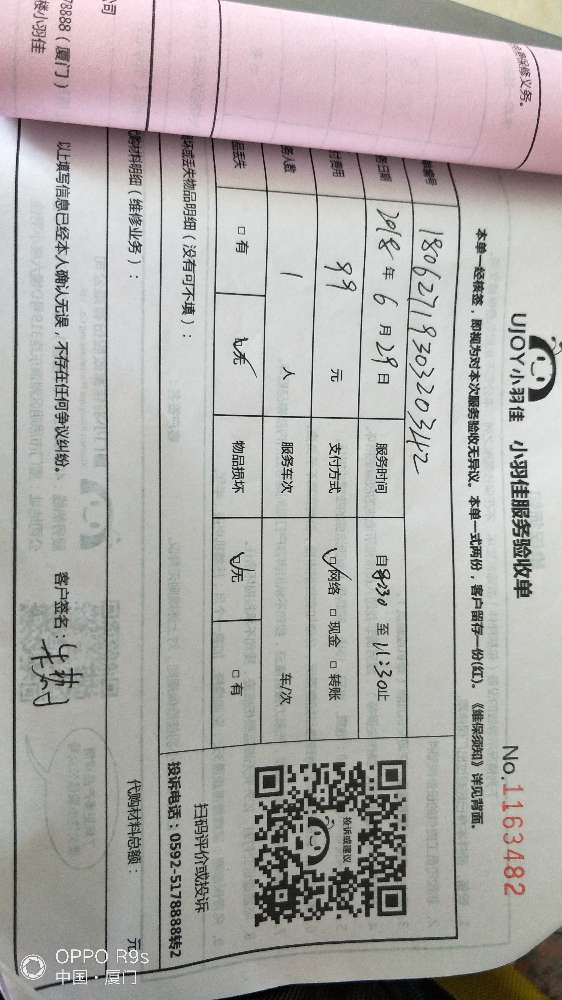 UJOY小羽佳 小羽佳服务验收单
No.1163482
本单一经核签，即视为对本次服务验收无异议。本单一式两份，客户留存一份(红)。《维保须知》详见背面。
1806271930320342
务日期 2018年6月29日 服务时间 自8:30至11:30止
付费用 99 元 支付方式 网络 现金 转账
务人数 1 人 服务车次 车/次
品丢失 有 无 物品损坏 无 有
坏或丢失物品明细（没有可不填）：
投诉或建议
扫码评价或投诉
投诉电话：0592-5178888转2
购材料明细（维修业务）：
代购材料总额： 元
以上填写信息已经本人确认无误，不存在任何争议纠纷。 客户签名：
保修义务。
公司
78888（厦门）
楼小羽佳
OPPO R9s
中国·厦门